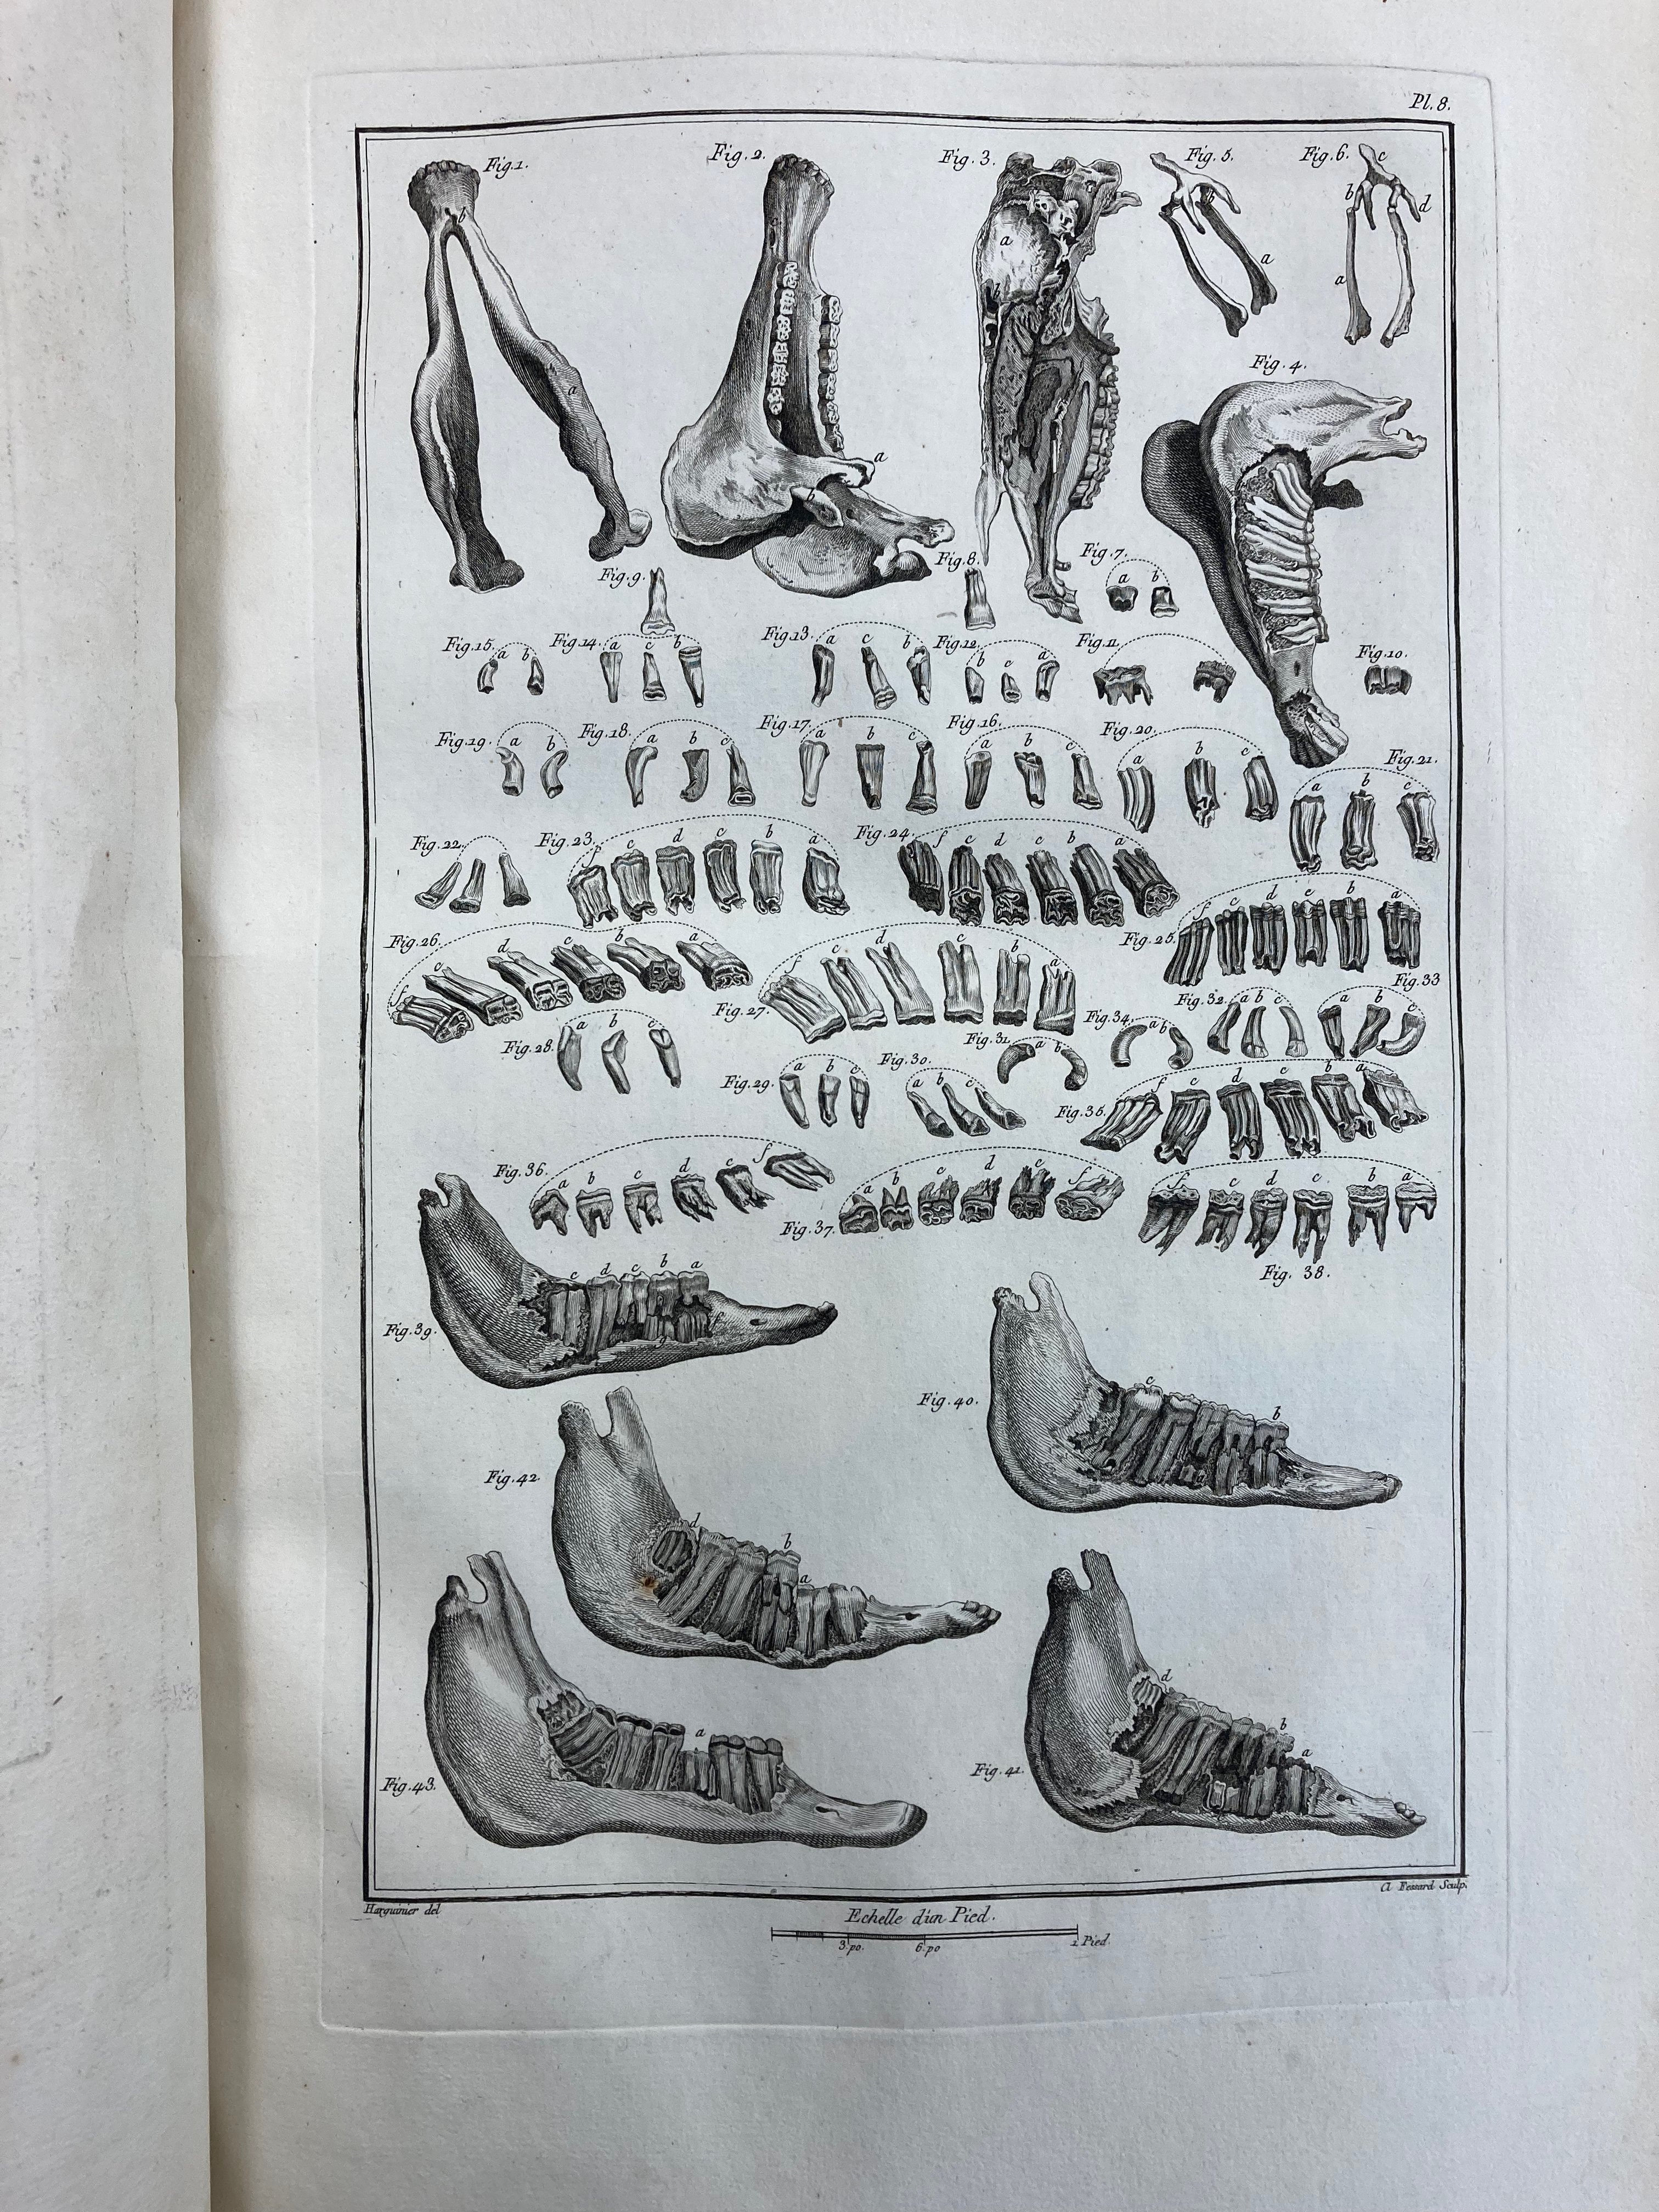 Pl. 8.
Fig. 1.
b
a
Fig. 2.
c
a
b
Fig. 3.
a
b
Fig. 5.
b
a
Fig. 6.
c
b
d
a
Fig. 4.
Fig. 9.
Fig. 8.
Fig. 7.
a b
Fig. 15.
a b
Fig. 14.
a c b
Fig. 13.
a c b
Fig. 12.
b c a
Fig. 11.
Fig. 10.
Fig. 19.
a b
Fig. 18.
a b c
Fig. 17.
a b c
Fig. 16.
a b c
Fig. 20.
a b c
Fig. 21.
a b c
Fig. 22.
Fig. 23.
f e d c b a
Fig. 24.
f e d c b a
Fig. 25.
f e d c b a
Fig. 26.
f e d c b a
Fig. 27.
f e d c b a
Fig. 33
a b c
Fig. 32.
a b c
Fig. 34.
a b
Fig. 28.
a b c
Fig. 31.
a b
Fig. 29.
a b c
Fig. 30.
a b c
Fig. 35.
f e d c b a
Fig. 36.
a b c d e f
Fig. 37.
a b c d e f
Fig. 38.
f e d c b a
Fig. 39.
e d c b a
f
g
Fig. 40.
c
b
a
Fig. 42.
d
b
a
Fig. 43.
a
Fig. 41.
d
b
a
Harguinier del
Cl Fessard Sculp.
Echelle d'un Pied.
3. po. 6. po 1 Pied.